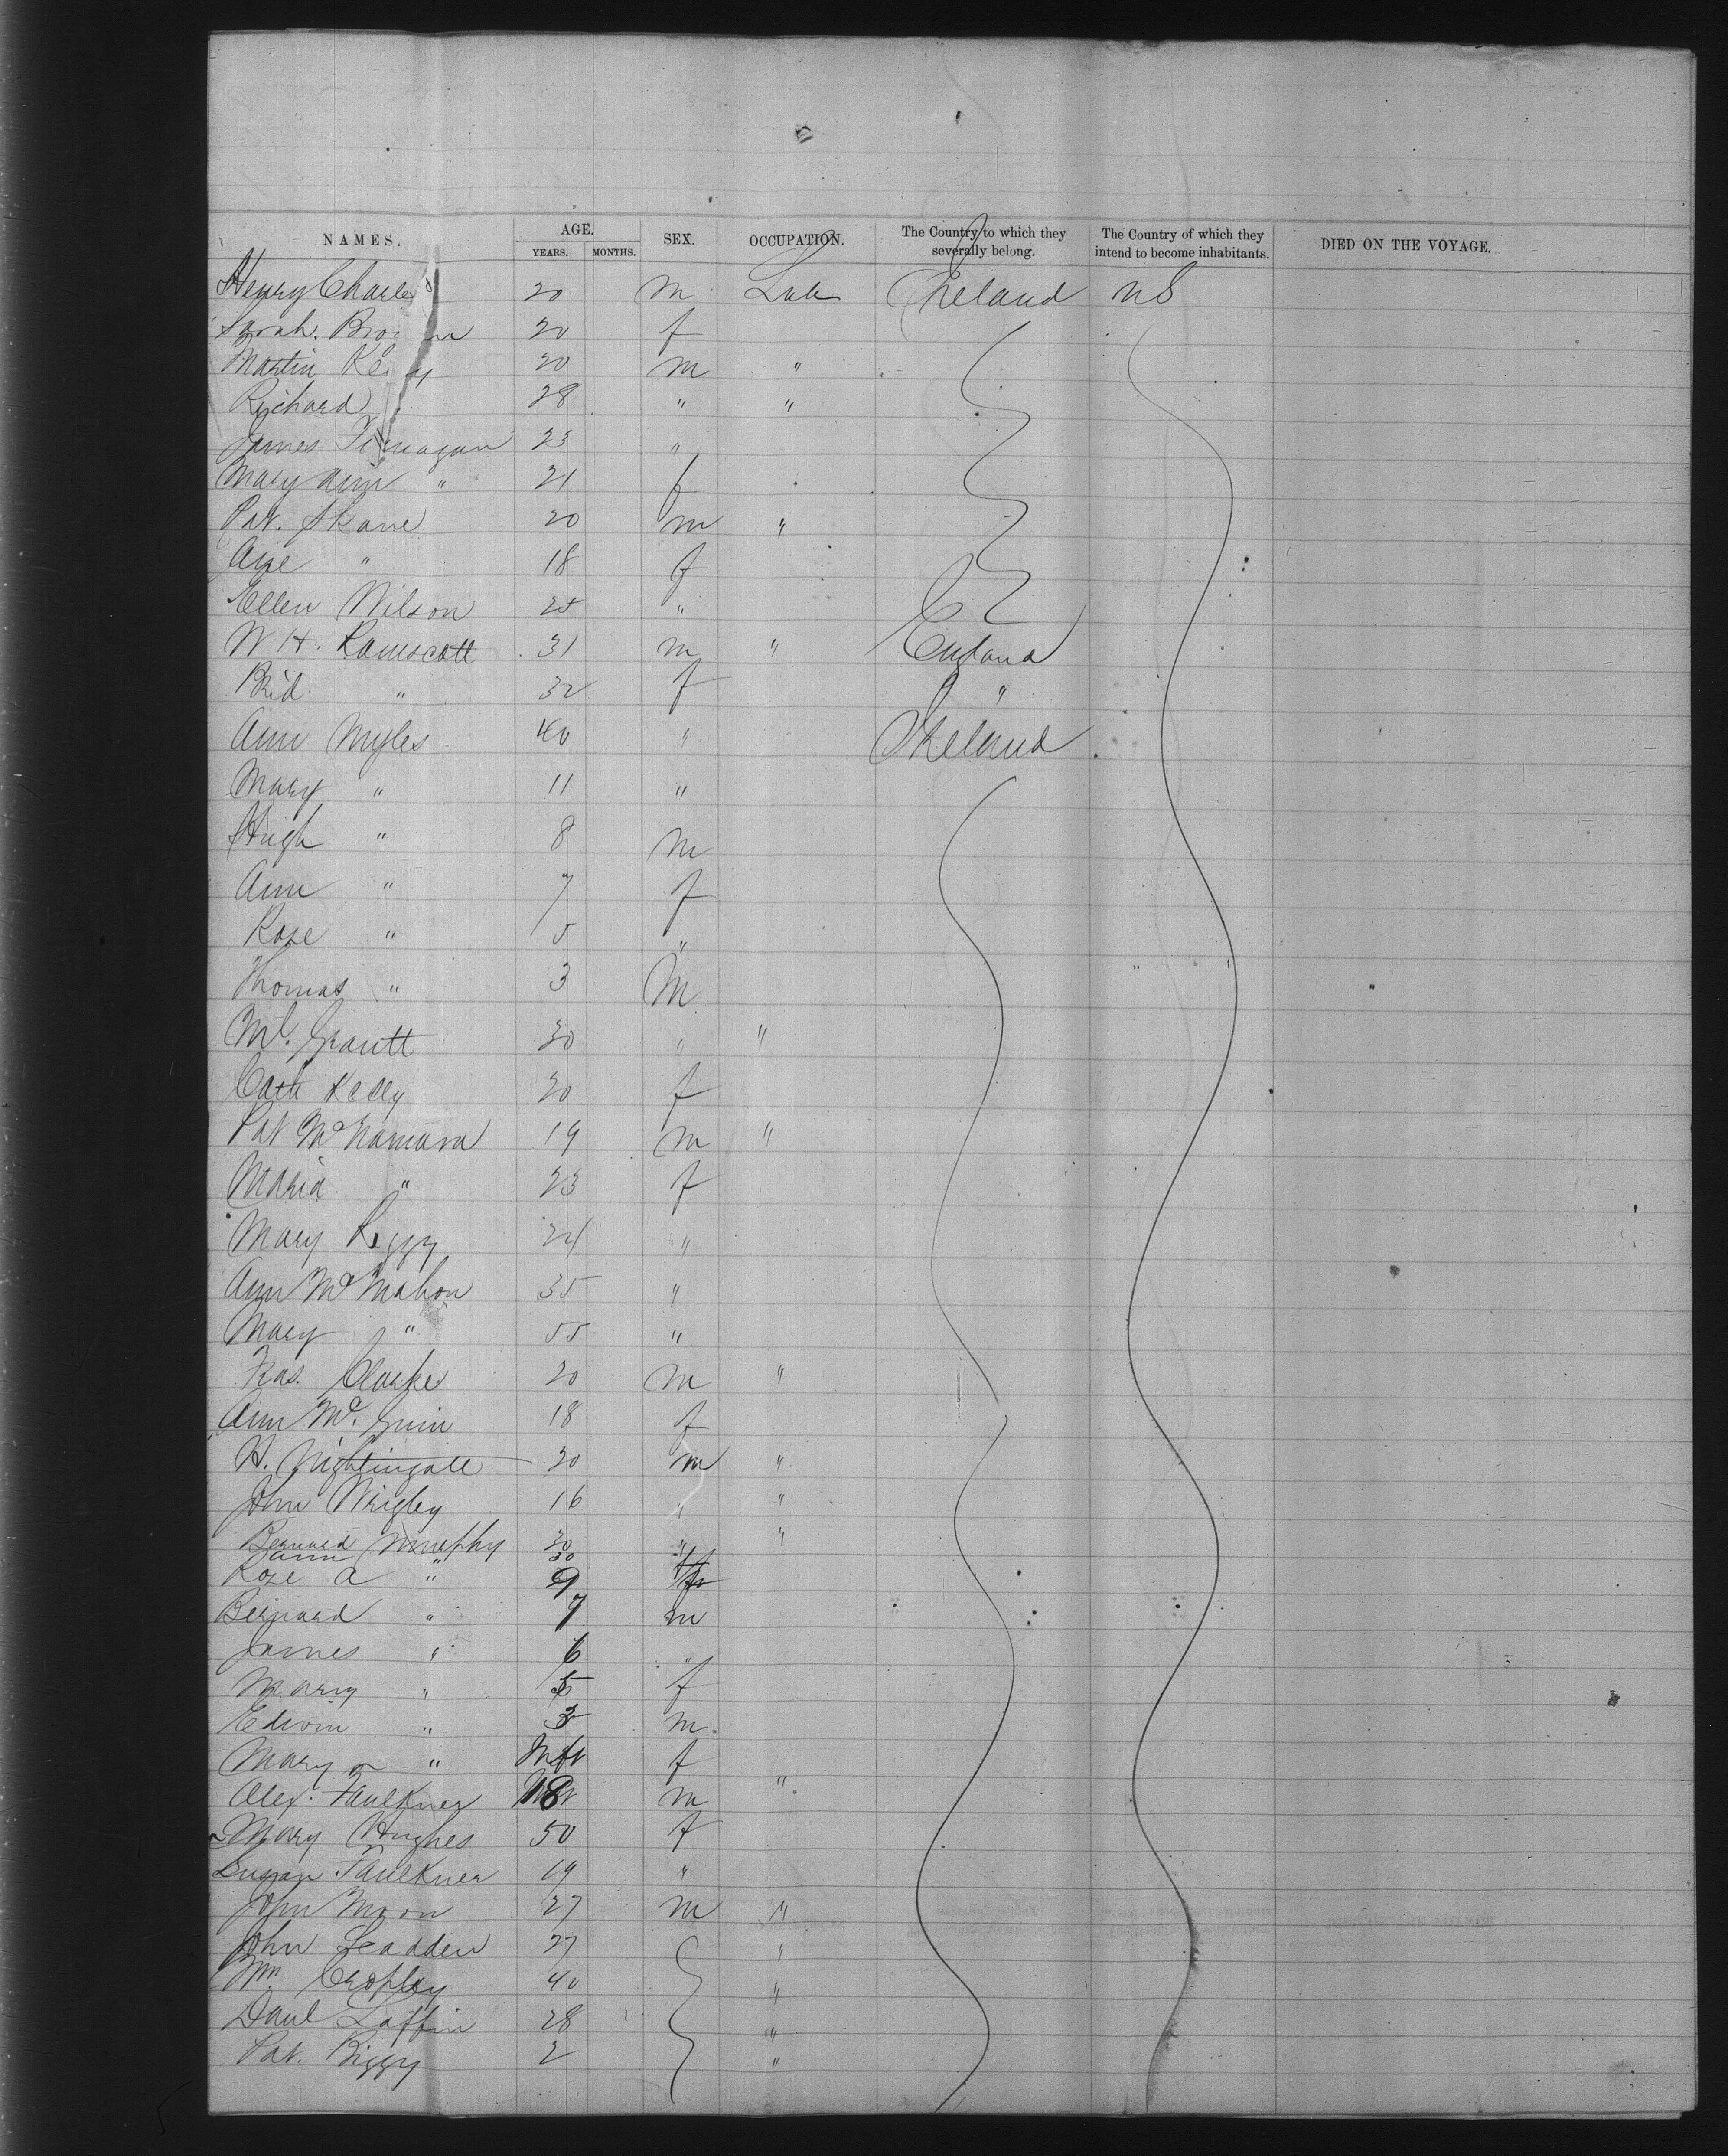 NAMES. AGE. SEX. OCCUPATION. The Country to which they severally belong. The Country of which they intend to become inhabitants. DIED ON THE VOYAGE.
YEARS. MONTHS.
Henry Charles 20 m Lab Ireland US
Sarah. 20 f
Martin 20 m "
Richard 28 " "
James 23 "
Mary Ann " 21 f
Pat. Skane 20 m "
" 18 f
Ellen Wilson 25 "
W H. Ramscott 31 m " England
Brid " 32 f "
Ann Myles 40 " Ireland
Mary " 11 "
Hugh " 8 m
Ann " 7 f
Rose " 5 "
Thomas " 3 M
Ml. Grautt 30 " "
Cath Kelly 20 f
Pat McNamara 19 m "
Maria " 23 f
Mary 24 "
Ann McMahon 35 "
Mary " 55 "
Clarke 20 m "
Ann Mc. Guin 18 f
H. Nightingale 20 m "
John Wrigley 16 " "
Bernard Murphy 30 " "
Ann " 30 f
Rose A " 9 f
Bernard " 7 m
James " 6 "
Mary " 5 f
Edwin " 3 m.
Mary " Inft f
Alex. Faulkner 18 m "
Mary Hughes 50 f
Susan Faulkner 19 "
John Moon 27 m "
John Leadden 27 "
Wm. Cropley 40 "
Danl Laffin 28 "
Pat. Biggy 2 "